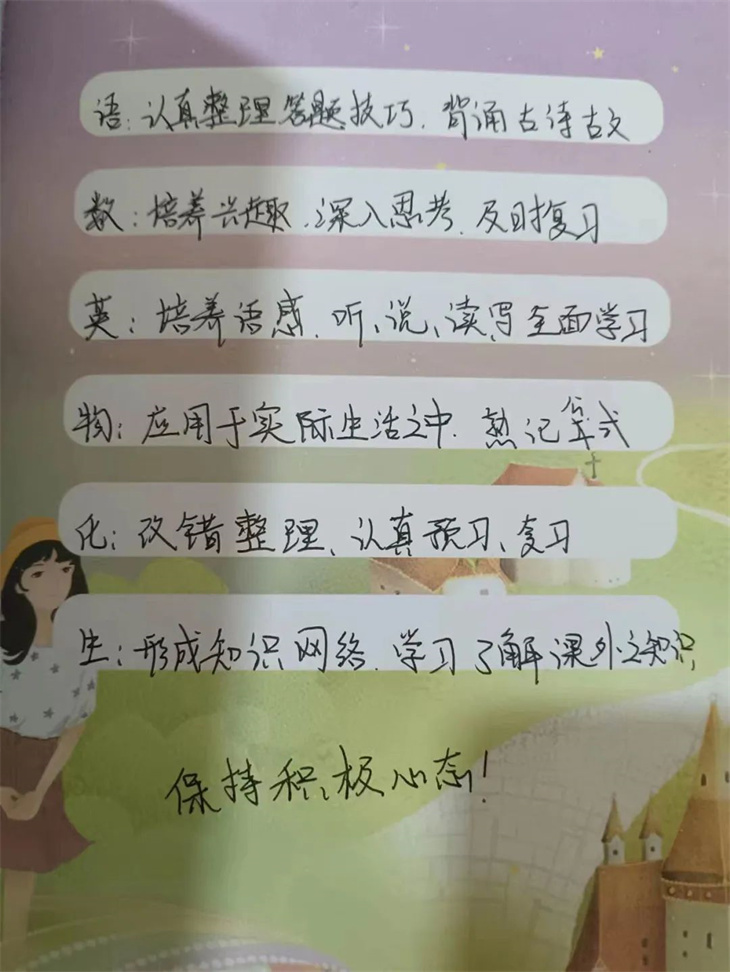 语:认真整理答题技巧.背诵古诗古文
数:培养兴趣.深入思考.及时复习
英:培养语感.听、说、读写全面学习
物:应用于实际生活之中.熟记公式
化:改错整理、认真预习、复习
生:形成知识网络.学习了解课外之知识
保持积极心态!